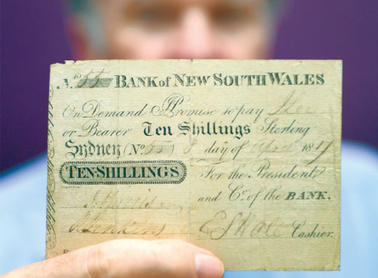 No. 55 BANK of NEW SOUTH WALES
On Demand I Promise to pay
or Bearer Ten Shillings Sterling
Sydney (No. 55) 8 day of April 1817
TEN SHILLINGS For the President
and Co. of the BANK.
E S Hall Cashier.